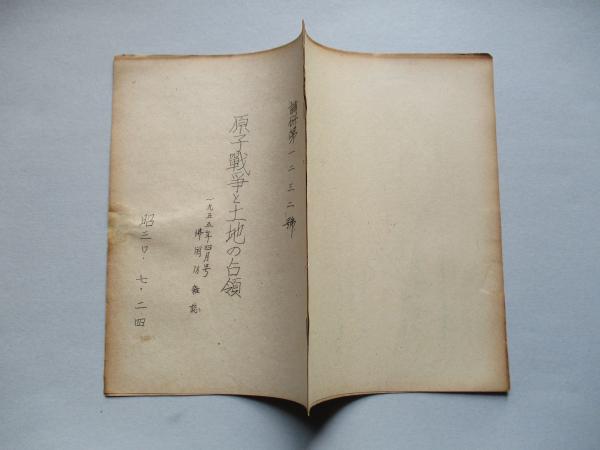 調研第一二三二號
原子戰爭と土地の占領
一九五五年四月号
佛國防雜誌
昭三〇・七・二四